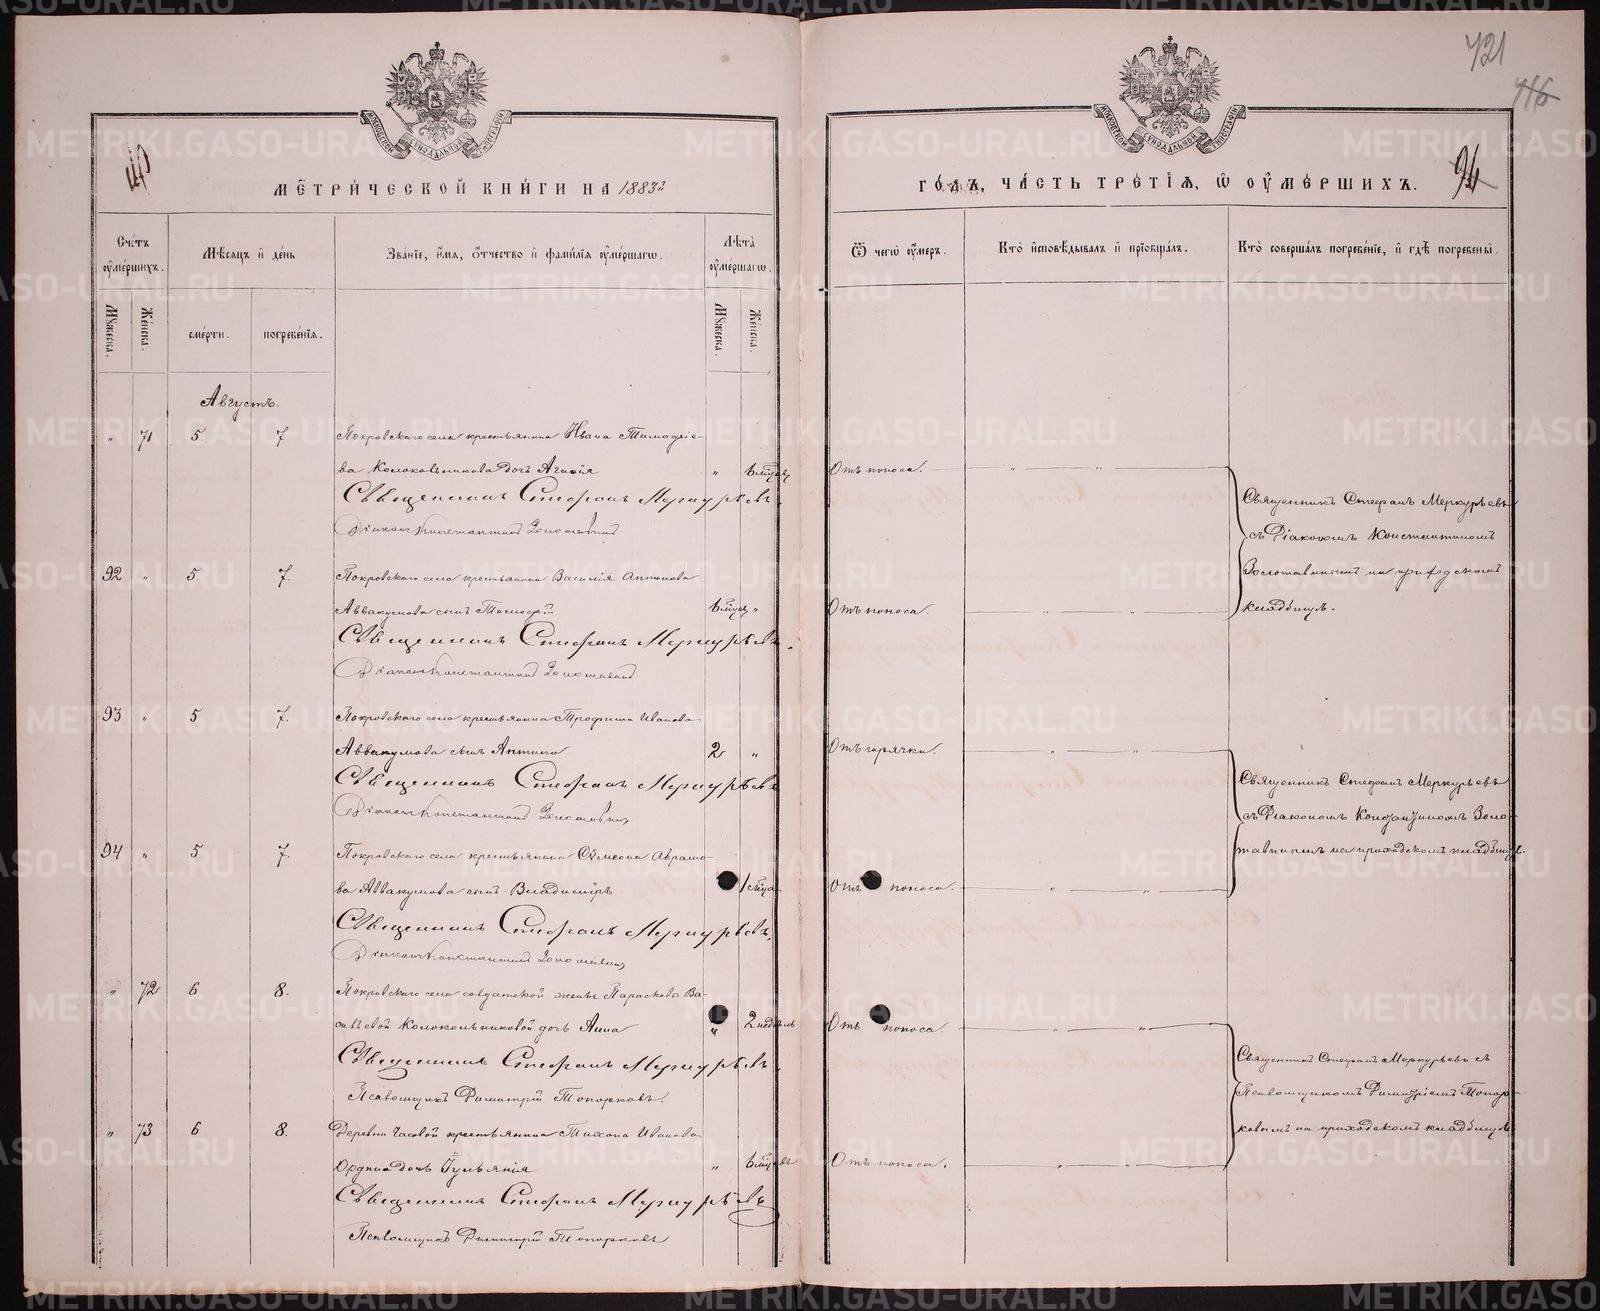 721
716
МЕТРИЧЕСКОЙ КНИГИ НА 1883
ГОДЪ, ЧАСТЬ ТРЕТІЯ, Ѿ ОУМЕРШИХЪ.
94
Счетъ оумершихъ.
Мѣсяцъ и день
Званіе, имя, отчество и фамилія оумершагѡ.
Лѣта оумершагѡ.
Ѿ чегѡ оумеръ.
Кто исповѣдывалъ и пріобщалъ.
Кто совершалъ погребеніе, и гдѣ погребены.
Мужеска.
Женска.
смерти.
погребенія.
Мужеска.
Женска.
Августъ.
" 71 5 7 Покровскаго села крестьянина Ивана Тимоѳіе-
ва Колоковникова дочь Агаѳія " 6 мѣсяц Отъ поноса. " "
Священникъ Стефанъ Меркурьевъ.
Діаконъ Константинъ Золотавинъ
Священникъ Стефанъ Меркурьевъ
съ Діакономъ Константиномъ
Золотавинымъ на приходскомъ
кладбищѣ.
92 " 5 7. Покровскаго села крестьянина Василія Антонова
Аввакумова сынъ Тимоѳей 6 мѣсяц " Отъ поноса. " "
Священникъ Стефанъ Меркурьевъ.
Діаконъ Константинъ Золотавинъ
93 " 5 7. Покровскаго села крестьянина Трофима Иванова
Аввакумова сынъ Антипа 2 " Отъ горячки. " "
Священникъ Стефанъ Меркурьевъ
Діаконъ Константинъ Золотавинъ
Священникъ Стефанъ Меркурьевъ
съ Діакономъ Константиномъ Золо-
тавинымъ на приходскомъ кладбищѣ.
94 " 5 7. Покровскаго села крестьянина Сѵмеона Аврамо-
ва Аввакумова сынъ Владиміръ Отъ поноса. " "
Священникъ Стефанъ Меркурьевъ.
Діаконъ Константинъ Золотавинъ
" 72 6 8. Покровскаго села солдатской жены Параскевы Ва-
сильевой Колокольниковой дочь Анна " 2 недѣль Отъ поноса. " "
Священникъ Стефанъ Меркурьевъ
Псаломщикъ Димитрій Топорковъ.
Священникъ Стефанъ Меркурьевъ съ
Псаломщикомъ Димитріемъ Топор-
ковымъ на приходскомъ кладбищѣ
" 73 6 8. Деревни Часовой крестьянина Тихона Иванова
дочь Іульянія " 6 мѣсяцъ Отъ поноса. " "
Священникъ Стефанъ Меркурьевъ
Псаломщикъ Димитрій Топорковъ
METRIKI.GASO-URAL.RU